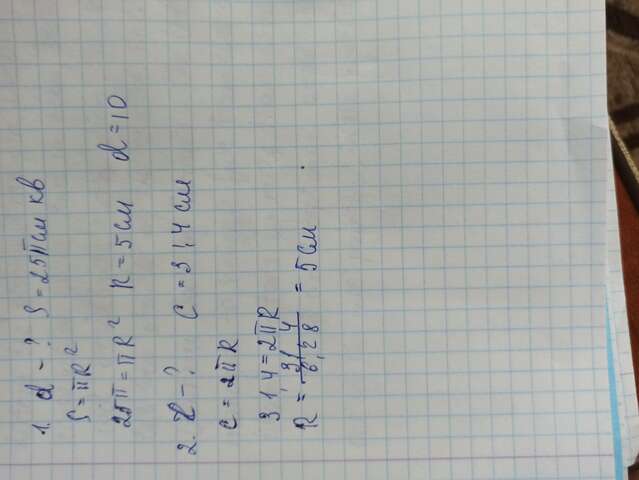 1. d - ? S = 25π см кв
S = πR²
25π = πR² R = 5 см d = 10
2. R - ? C = 31,4 см
C = 2πR
31,4 = 2πR
R = 31,4/6,28 = 5 см